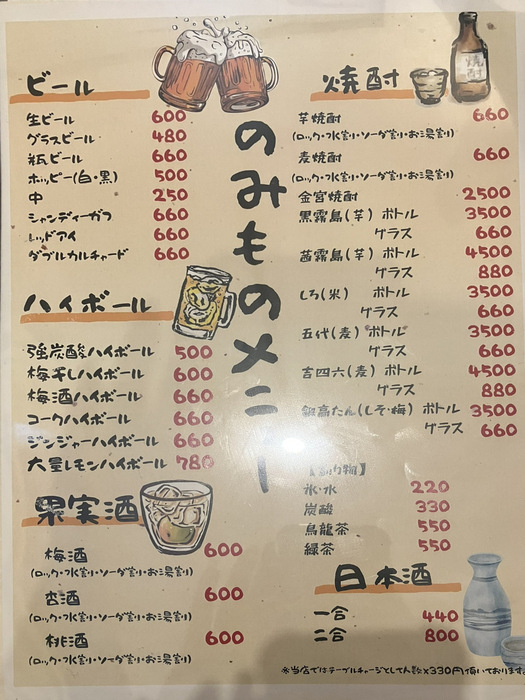 のみものメニュー
ビール
生ビール 600
グラスビール 480
瓶ビール 660
ホッピー(白・黒) 500
中 250
シャンディーガフ 660
レッドアイ 660
ダブルカルチャード 660
ハイボール
強炭酸ハイボール 500
梅干しハイボール 600
梅酒ハイボール 660
コークハイボール 660
ジンジャーハイボール 660
大量レモンハイボール 780
果実酒
梅酒 600
(ロック・水割り・ソーダ割り・お湯割り)
杏酒 600
(ロック・水割り・ソーダ割り・お湯割り)
桃酒 600
(ロック・水割り・ソーダ割り・お湯割り)
焼酎
焼酎
芋焼酎 660
(ロック・水割り・ソーダ割り・お湯割り)
麦焼酎 660
(ロック・水割り・ソーダ割り・お湯割り)
金宮焼酎 2500
黒霧島(芋) ボトル 3500
グラス 660
茜霧島(芋) ボトル 4500
グラス 880
しろ(米) ボトル 3500
グラス 660
五代(麦) ボトル 3500
グラス 660
吉四六(麦) ボトル 4500
グラス 880
鍛高たん(しそ・梅) ボトル 3500
グラス 660
【割り物】
氷・水 220
炭酸 330
烏龍茶 550
緑茶 550
日本酒
一合 440
二合 800
※当店ではテーブルチャージとして人数×330円頂いております。